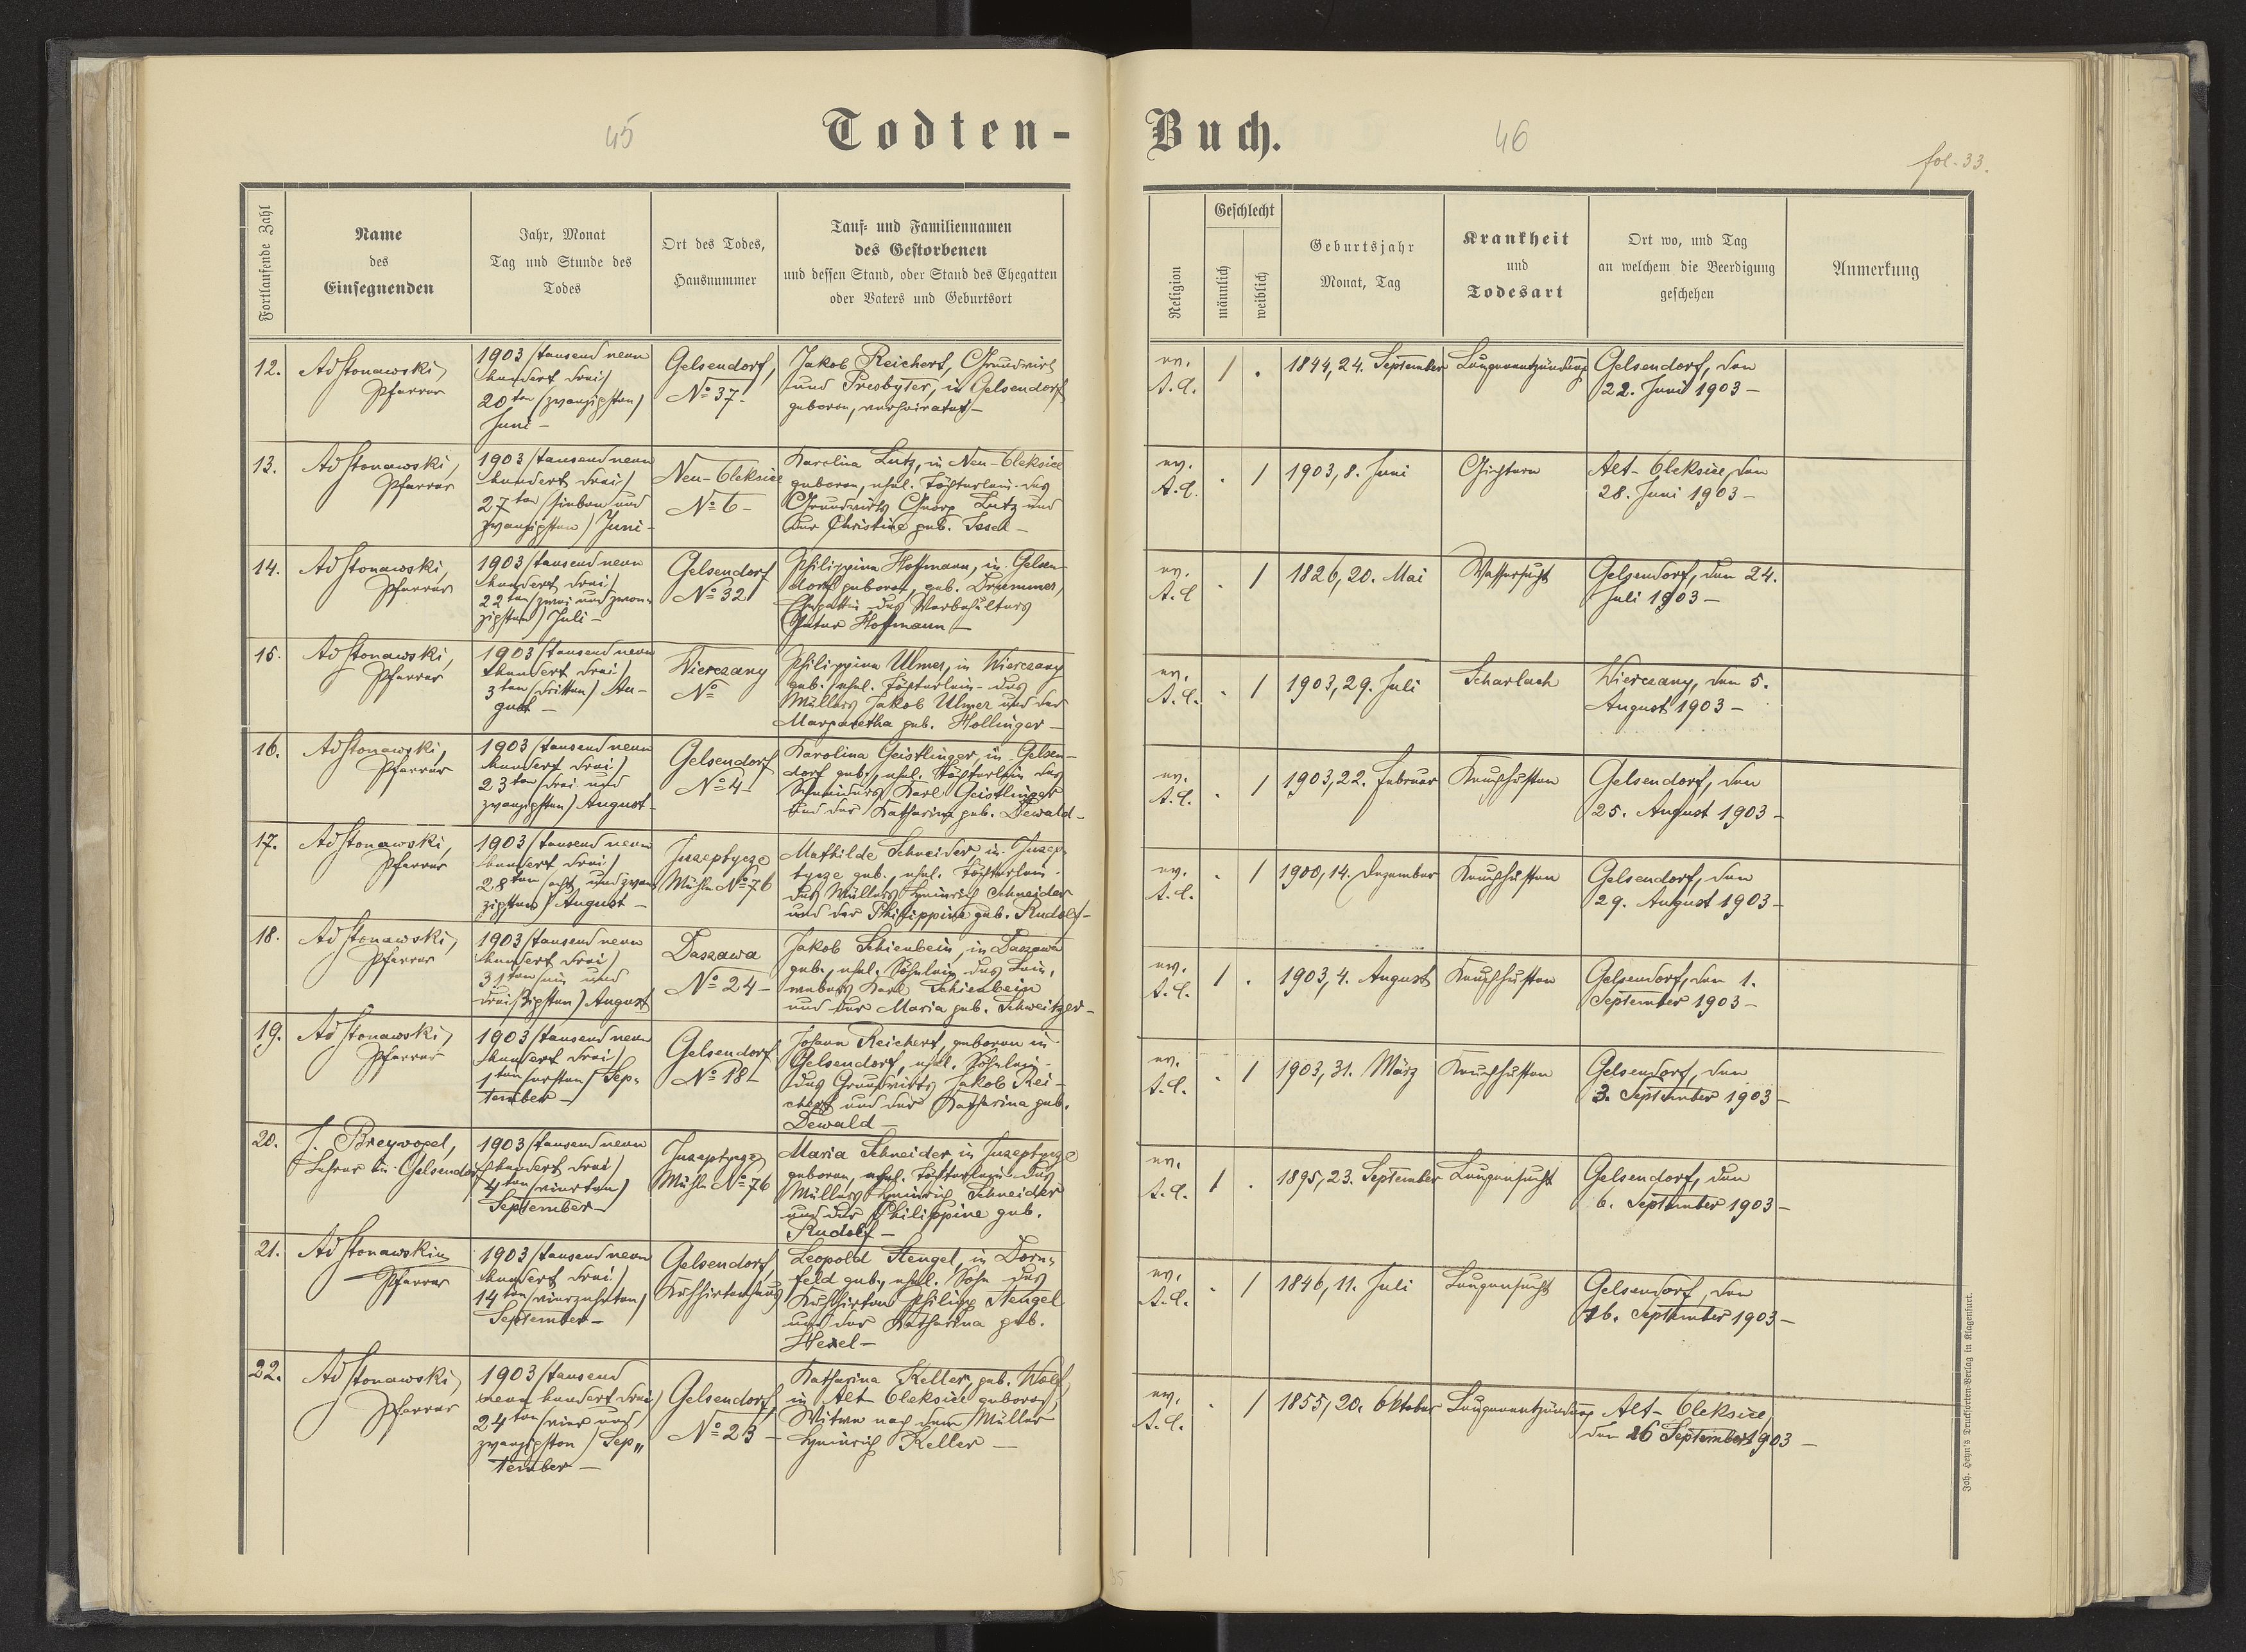 45
Todten-
Fortlaufende Zahl
Name
des
Einsegnenden
Jahr, Monat
Tag und Stunde des
Todes
Ort des Todes,
Hausnummer
Tauf= und Familiennamen
des Gestorbenen
und dessen Stand, oder Stand des Ehegatten
oder Vaters und Geburtsort
12.
Ad Stonawski,
Pfarrer
1903 (tausend neun
hundert drei)
20ten (zwanzigsten)
Juni –
Gelsendorf,
No 37 –
Jakob Reichert, Grundwirt
und Presbyter, in Gelsendorf
geboren, verheiratet –
13.
Ad Stonawski,
Pfarrer
1903 (tausend neun
hundert drei)
27ten (sieben und
zwanzigsten) Juni –
Neu-Oleksice
No 6 –
Karolina Lutz, in Neu-Oleksice
geboren, ehel. Töchterlein des
Grundwirts Georg Lutz und
der Christine geb.
14.
Ad Stonawski,
Pfarrer
1903 (tausend neun
hundert drei)
22ten (zwei und zwan-
zigsten) Juli –
Gelsendorf
No 32
Philippina Hoffmann, in Gelsen-
dorf geboren, geb. Drummer,
Ehegattin des Vorbehälters
Peter Hoffmann –
15.
Ad Stonawski,
Pfarrer
1903 (tausend neun
hundert drei)
3ten (dritten) Au-
gust –
Wierczany
No
Philippina Ulmer, in Wierczany
geb., ehel. Töchterlein des
Müllers Jakob Ulmer und der
Margaretha geb. Hollinger –
16.
Ad Stonawski,
Pfarrer
1903 (tausend neun
hundert drei)
23ten (drei und
zwanzigsten) August –
Gelsendorf
No 4
Karolina Geistlinger, in Gelsen-
dorf geb., ehel. Töchterlein des
Schneiders Karl Geistlinger
und der Katharina geb. Dewald –
17.
Ad Stonawski,
Pfarrer
1903 (tausend neun
hundert drei)
28ten (acht und zwan-
zigsten) August –
Juseptycze
Mühle No 76
Mathilde Schneider, in Jusep-
tycze geb., ehel. Töchterlein
des Müllers Heinrich Schneider
und der Philippine geb. Rudolf –
18.
Ad Stonawski,
Pfarrer
1903 (tausend neun
hundert drei)
31ten (ein und
dreißigsten) August
Daszawa
No 24 –
Jakob Schienbein, in Daszawa
geb., ehel. Söhnlein des Lein-
webers Karl Schienbein
und der Maria geb. Schweitzer –
19.
Ad Stonawski,
Pfarrer
1903 (tausend neun
hundert drei)
1ten (ersten) Sep-
tember –
Gelsendorf
No 18 –
Johann Reichert, geboren in
Gelsendorf, ehel. Söhnlein
des Grundwirts Jakob Rei-
chert und der Katharina geb.
Dewald –
20.
J. Breyvogel,
Lehrer in Gelsendorf
1903 (tausend neun
hundert drei)
4ten (vierten)
September –
Juseptycze
Mühle No 76
Maria Schneider in Juseptycze
geboren, ehel. Töchterlein des
Müllers Heinrich Schneider
und der Philippine geb.
Rudolf –
21.
Ad Stonawski
Pfarrer
1903 (tausend neun
hundert drei)
14ten (vierzehnten)
September –
Gelsendorf,
Kuhhirtenhaus
Leopold Stengel, in Dorn-
feld geb., ehel. Sohn des
Kuhhirten Philipp Stengel
und der Katharina geb.
Hexel –
22.
Ad Stonawski,
Pfarrer
1903 (tausend
neun hundert drei)
24ten (vier und
zwanzigsten) Sep„
tember –
Gelsendorf,
No 23 –
Katharina Keller, geb. Wolf,
in Alt Oleksice geboren,
Witwe nach dem Müller
Heinrich Keller –
Buch.
46
fol. 33.
Religion
Geschlecht
männlich
weiblich
Geburtsjahr
Monat, Tag
Krankheit
und
Todesart
Ort wo, und Tag
an welchem die Beerdigung
geschehen
Anmerkung
ev.
A.C.
1 .
1844, 24. September
Lungenentzündung
Gelsendorf, den
22. Juni 1903 –
ev.
A.C.
. 1
1903, 8. Juni
Gichtern
Alt-Oleksice, den
28. Juni 1903 –
ev.
A.C
. 1
1826, 20. Mai
Wassersucht
Gelsendorf, den 24.
Juli 1903 –
ev.
A.C.
. 1
1903, 29. Juli
Scharlach
Wierczany, den 5.
August 1903 –
ev.
A.C.
. 1
1903, 22. Februar
Keuchhusten
Gelsendorf, den
25. August 1903 –
ev.
A.C.
. 1
1900, 14. Dezember
Keuchhusten
Gelsendorf, den
29. August 1903 –
ev.
A.C.
1 .
1903, 4. August
Keuchhusten
Gelsendorf, den 1.
September 1903 –
ev.
A.C.
. 1
1903, 31. März
Keuchhusten
Gelsendorf, den
3. September 1903 –
ev.
A.C.
1 .
1895, 23. September
Lungensucht
Gelsendorf, den
6. September 1903 –
ev.
A.C.
. 1
1846, 11. Juli
Lungensucht
Gelsendorf, den
16. September 1903 –
ev.
A.C.
. 1
1855, 20. Oktober
Lungenentzündung
Alt-Oleksice,
den 26 September 1903 –
Joh. Heyn's Drucksorten-Verlag in Klagenfurt.
35